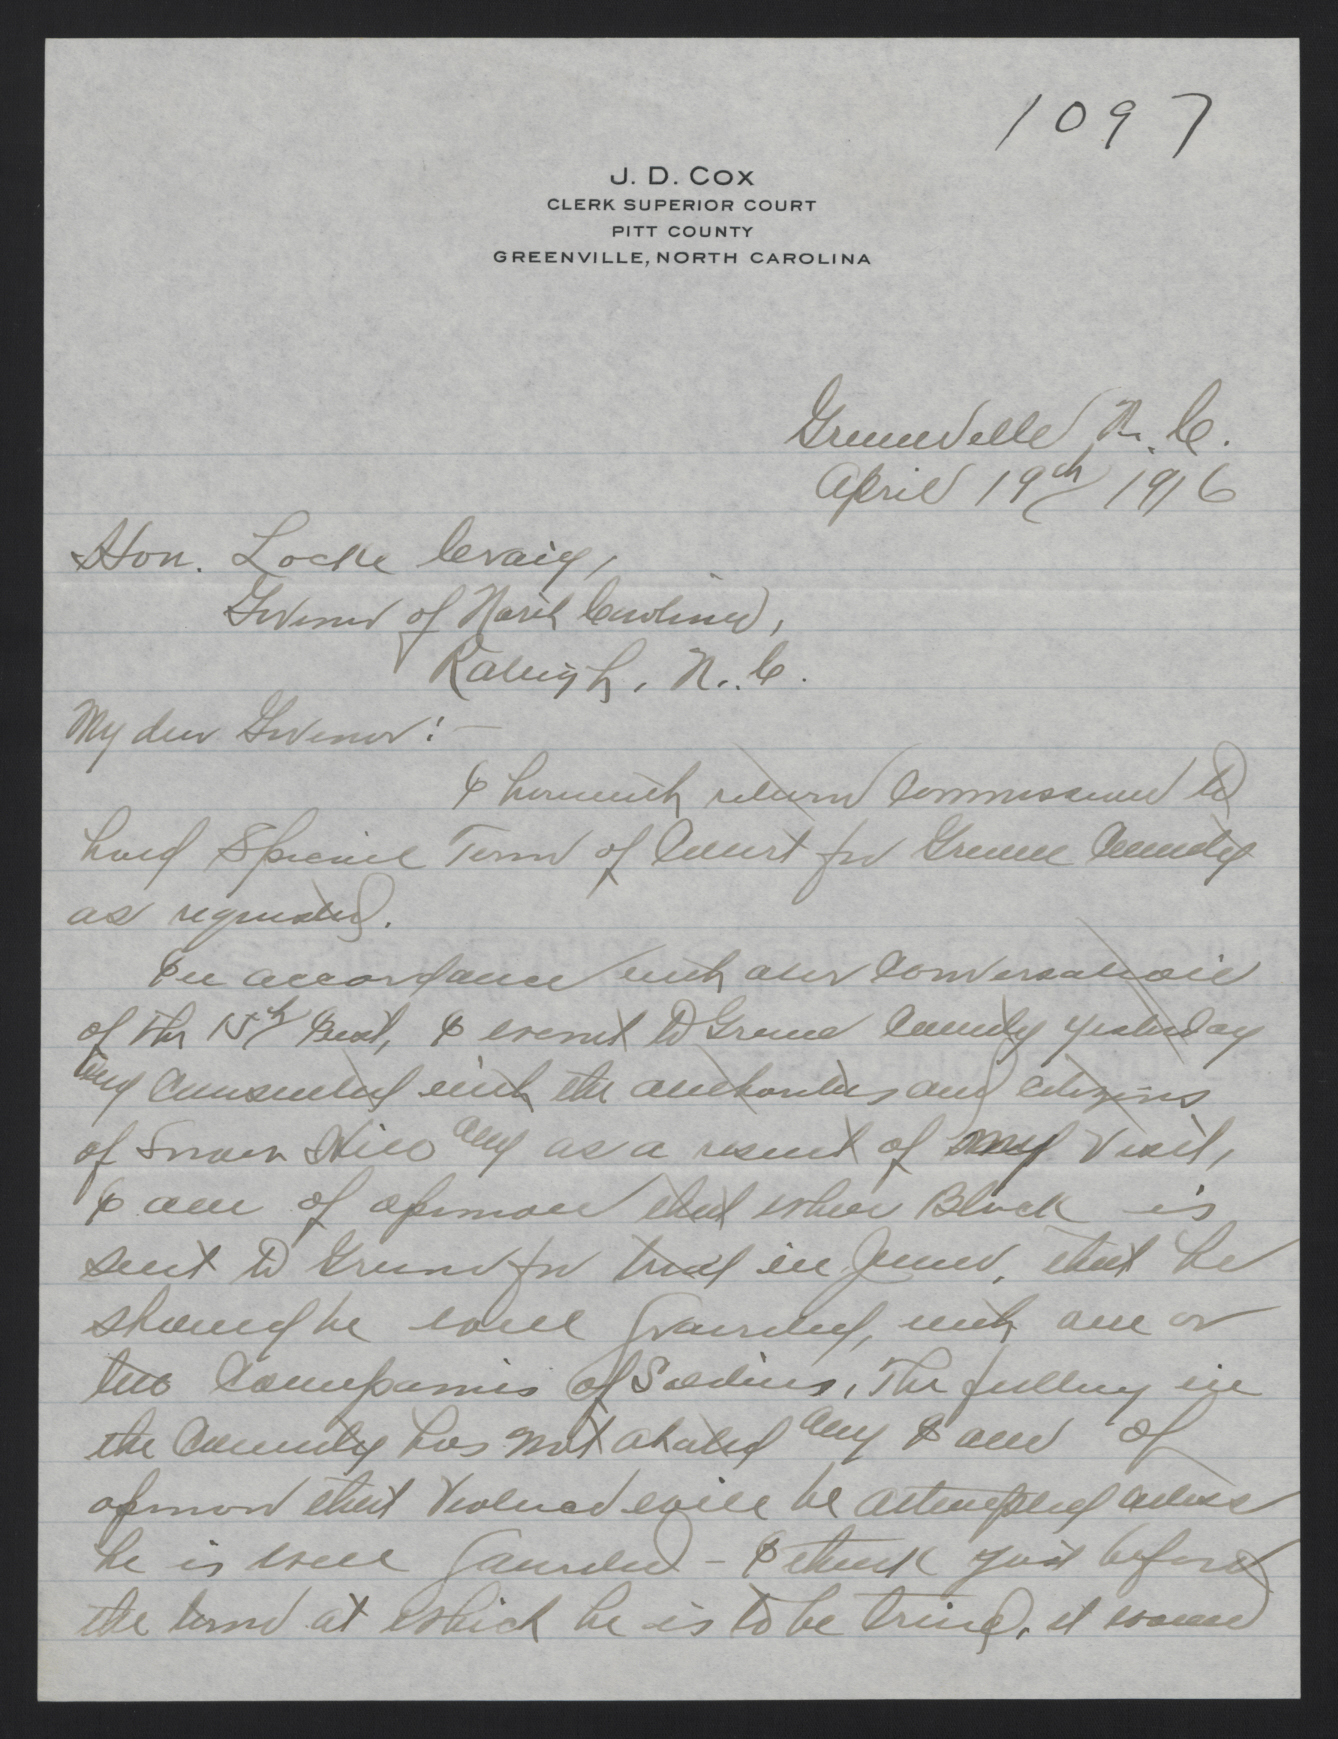 1097
J. D. COX
CLERK SUPERIOR COURT
PITT COUNTY
GREENVILLE, NORTH CAROLINA
Greenville N. C.
April 19th 1916
Hon. Locke Craig,
Governor of North Carolina,
Raleigh, N. C.
My dear Governor:-
I herewith return Commission to
hold Special Term of Court for Greene County
as requested.
In accordance with our Conversation
of the 15th Inst, I went to Greene County yesterday
and Consulted with the authorities and citizens
of Snow Hill and as a result of my visit,
I am of opinion that when Black is
sent to Greene for trial in June, that he
should be well Guarded, with one or
two Companies of Soldiers. The feeling in
the County has not abated and I am of
opinion that Violence will be attempted unless
he is well Guarded - I think just before
the term at which he is to be tried, it would